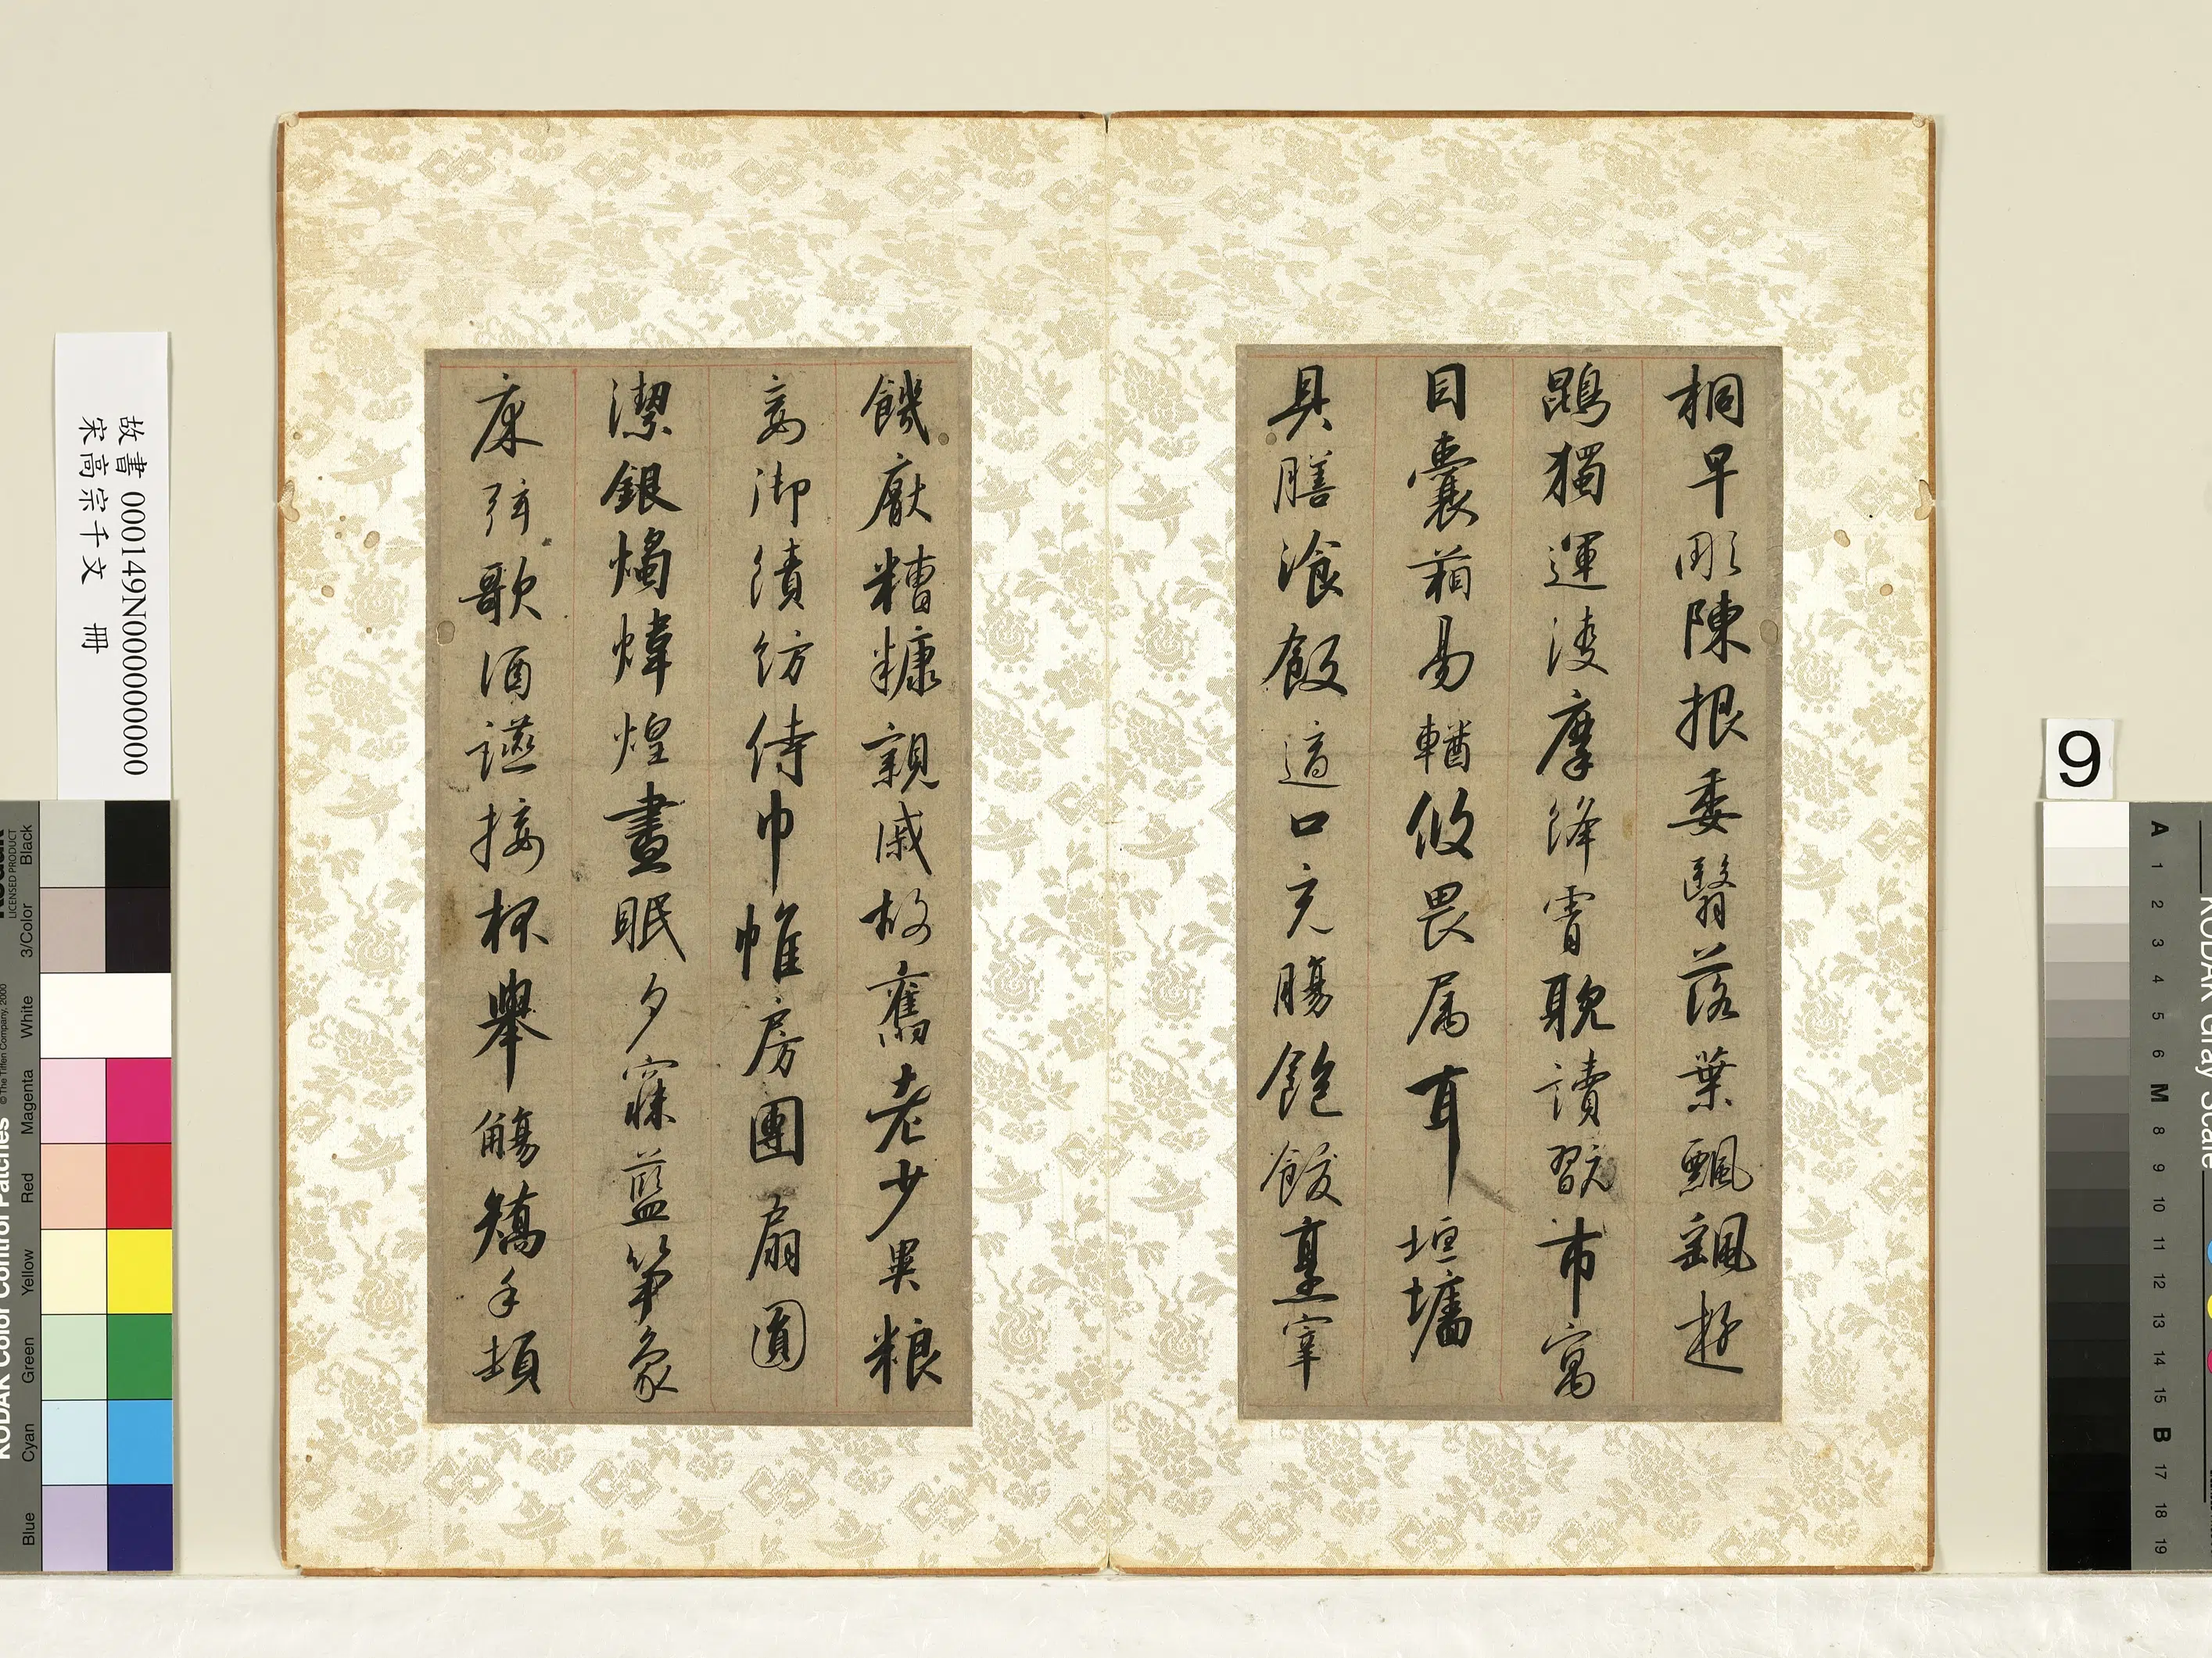 桐早彫陳根委翳落葉飄颻遊
鵾獨運凌摩絳霄耽讀翫市寓
目囊葙易輶攸畏属耳垣墻
具膳飡飯適口充膓飽飫烹宰
饑厭糟糠親戚故舊老少異粮
妾御績紡侍巾帷房團扇圓
潔銀燭煒煌晝眠夕寐藍笋象
床弦歌酒讌接杯舉觴矯手頓
故書 000149N000000000
宋高宗千文 冊
9
LICENSED PRODUCT
KODAK Color Control Patches
© The Tiffen Company, 2000
Blue Cyan Green Yellow Red Magenta White 3/Color Black
KODAK Gray Scale
A 1 2 3 4 5 6 M 8 9 10 11 12 13 14 15 B 17 18 19